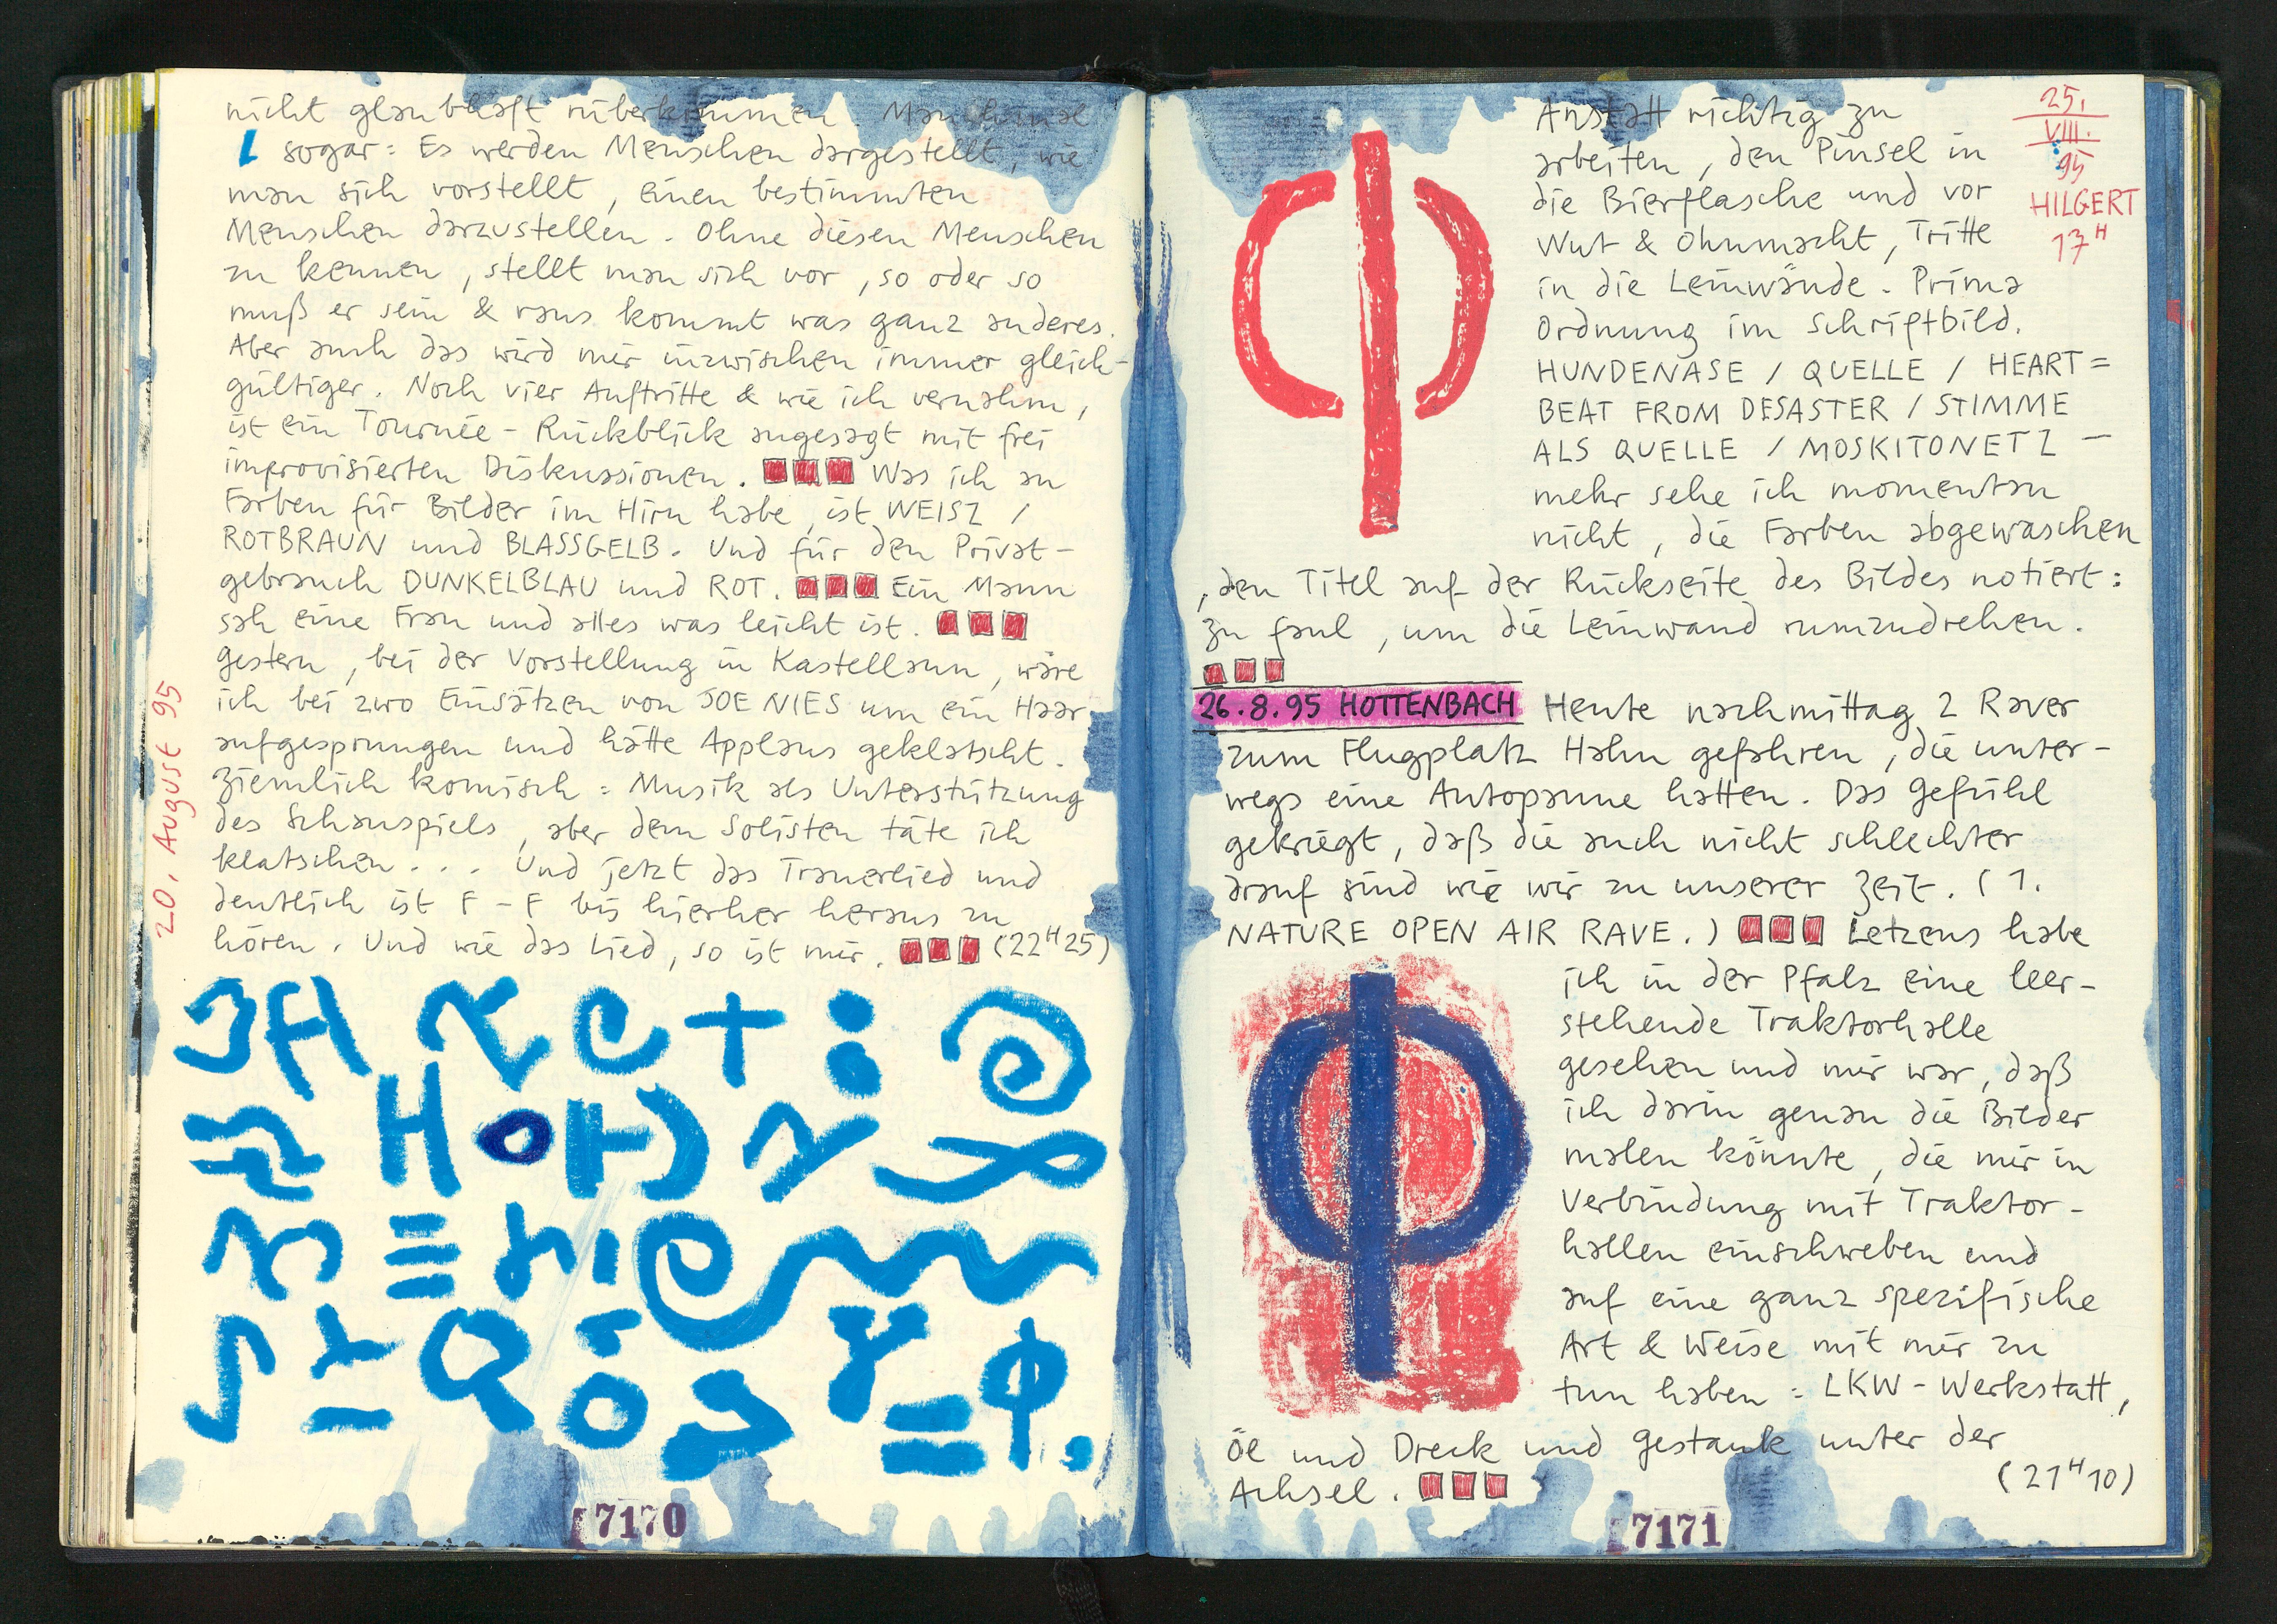 nicht glaubhaft rüberkommen. Manchmal
sogar: Es werden Menschen dargestellt, wie
man sich vorstellt, einen bestimmten
Menschen darzustellen. Ohne diesen Menschen
zu kennen, stellt man sich vor, so oder so
muß er sein & raus kommt was ganz anderes.
Aber auch das wird mir inzwischen immer gleich-
gültiger. Noch vier Auftritte & wie ich vernahm,
ist ein Tournée-Rückblick angesagt mit frei
improvisierten Diskussionen. Was ich an
Farben für Bilder im Hirn habe, ist WEISZ /
ROTBRAUN und BLASSGELB. Und für den Privat-
gebrauch DUNKELBLAU und ROT. Ein Mann
sah eine Frau und alles was leicht ist.
Gestern, bei der Vorstellung in Kastellaun, wäre
ich bei zwo Einsätzen von JOE NIES um ein Haar
aufgesprungen und hätte Applaus geklatscht.
Ziemlich komisch: Musik als Unterstützung
des Schauspiels, aber dem Solisten täte ich
klatschen... Und jetzt das Trauerlied und
deutlich ist F-F bis hierher heraus zu
hören. Und wie das Lied, so ist mir. (22H25)
20. August 95
7170
25.
VIII.
95
HILGERT
17H
Anstatt richtig zu
arbeiten, den Pinsel in
die Bierflasche und vor
Wut & Ohnmacht, Tritte
in die Leinwände. Prima
Ordnung im Schriftbild.
HUNDENASE / QUELLE / HEART=
BEAT FROM DESASTER / STIMME
ALS QUELLE / MOSKITONETZ –
mehr sehe ich momentan
nicht, die Farben abgewaschen
, den Titel auf der Rückseite des Bildes notiert:
zu faul, um die Leinwand rumzudrehen.
26.8.95 HOTTENBACH Heute nachmittag 2 Raver
zum Flugplatz Hahn gefahren, die unter-
wegs eine Autopanne hatten. Das Gefühl
gekriegt, daß die auch nicht schlechter
drauf sind wie wir zu unserer Zeit. (1.
NATURE OPEN AIR RAVE.) Letzens habe
ich in der Pfalz eine leer-
stehende Traktorhalle
gesehen und mir war, daß
ich darin genau die Bilder
malen könnte, die mir in
Verbindung mit Traktor-
hallen einschweben und
auf eine ganz spezifische
Art & Weise mit mir zu
tun haben: LKW-Werkstatt,
Öl und Dreck und Gestank unter der
Achsel. (21H10)
7171